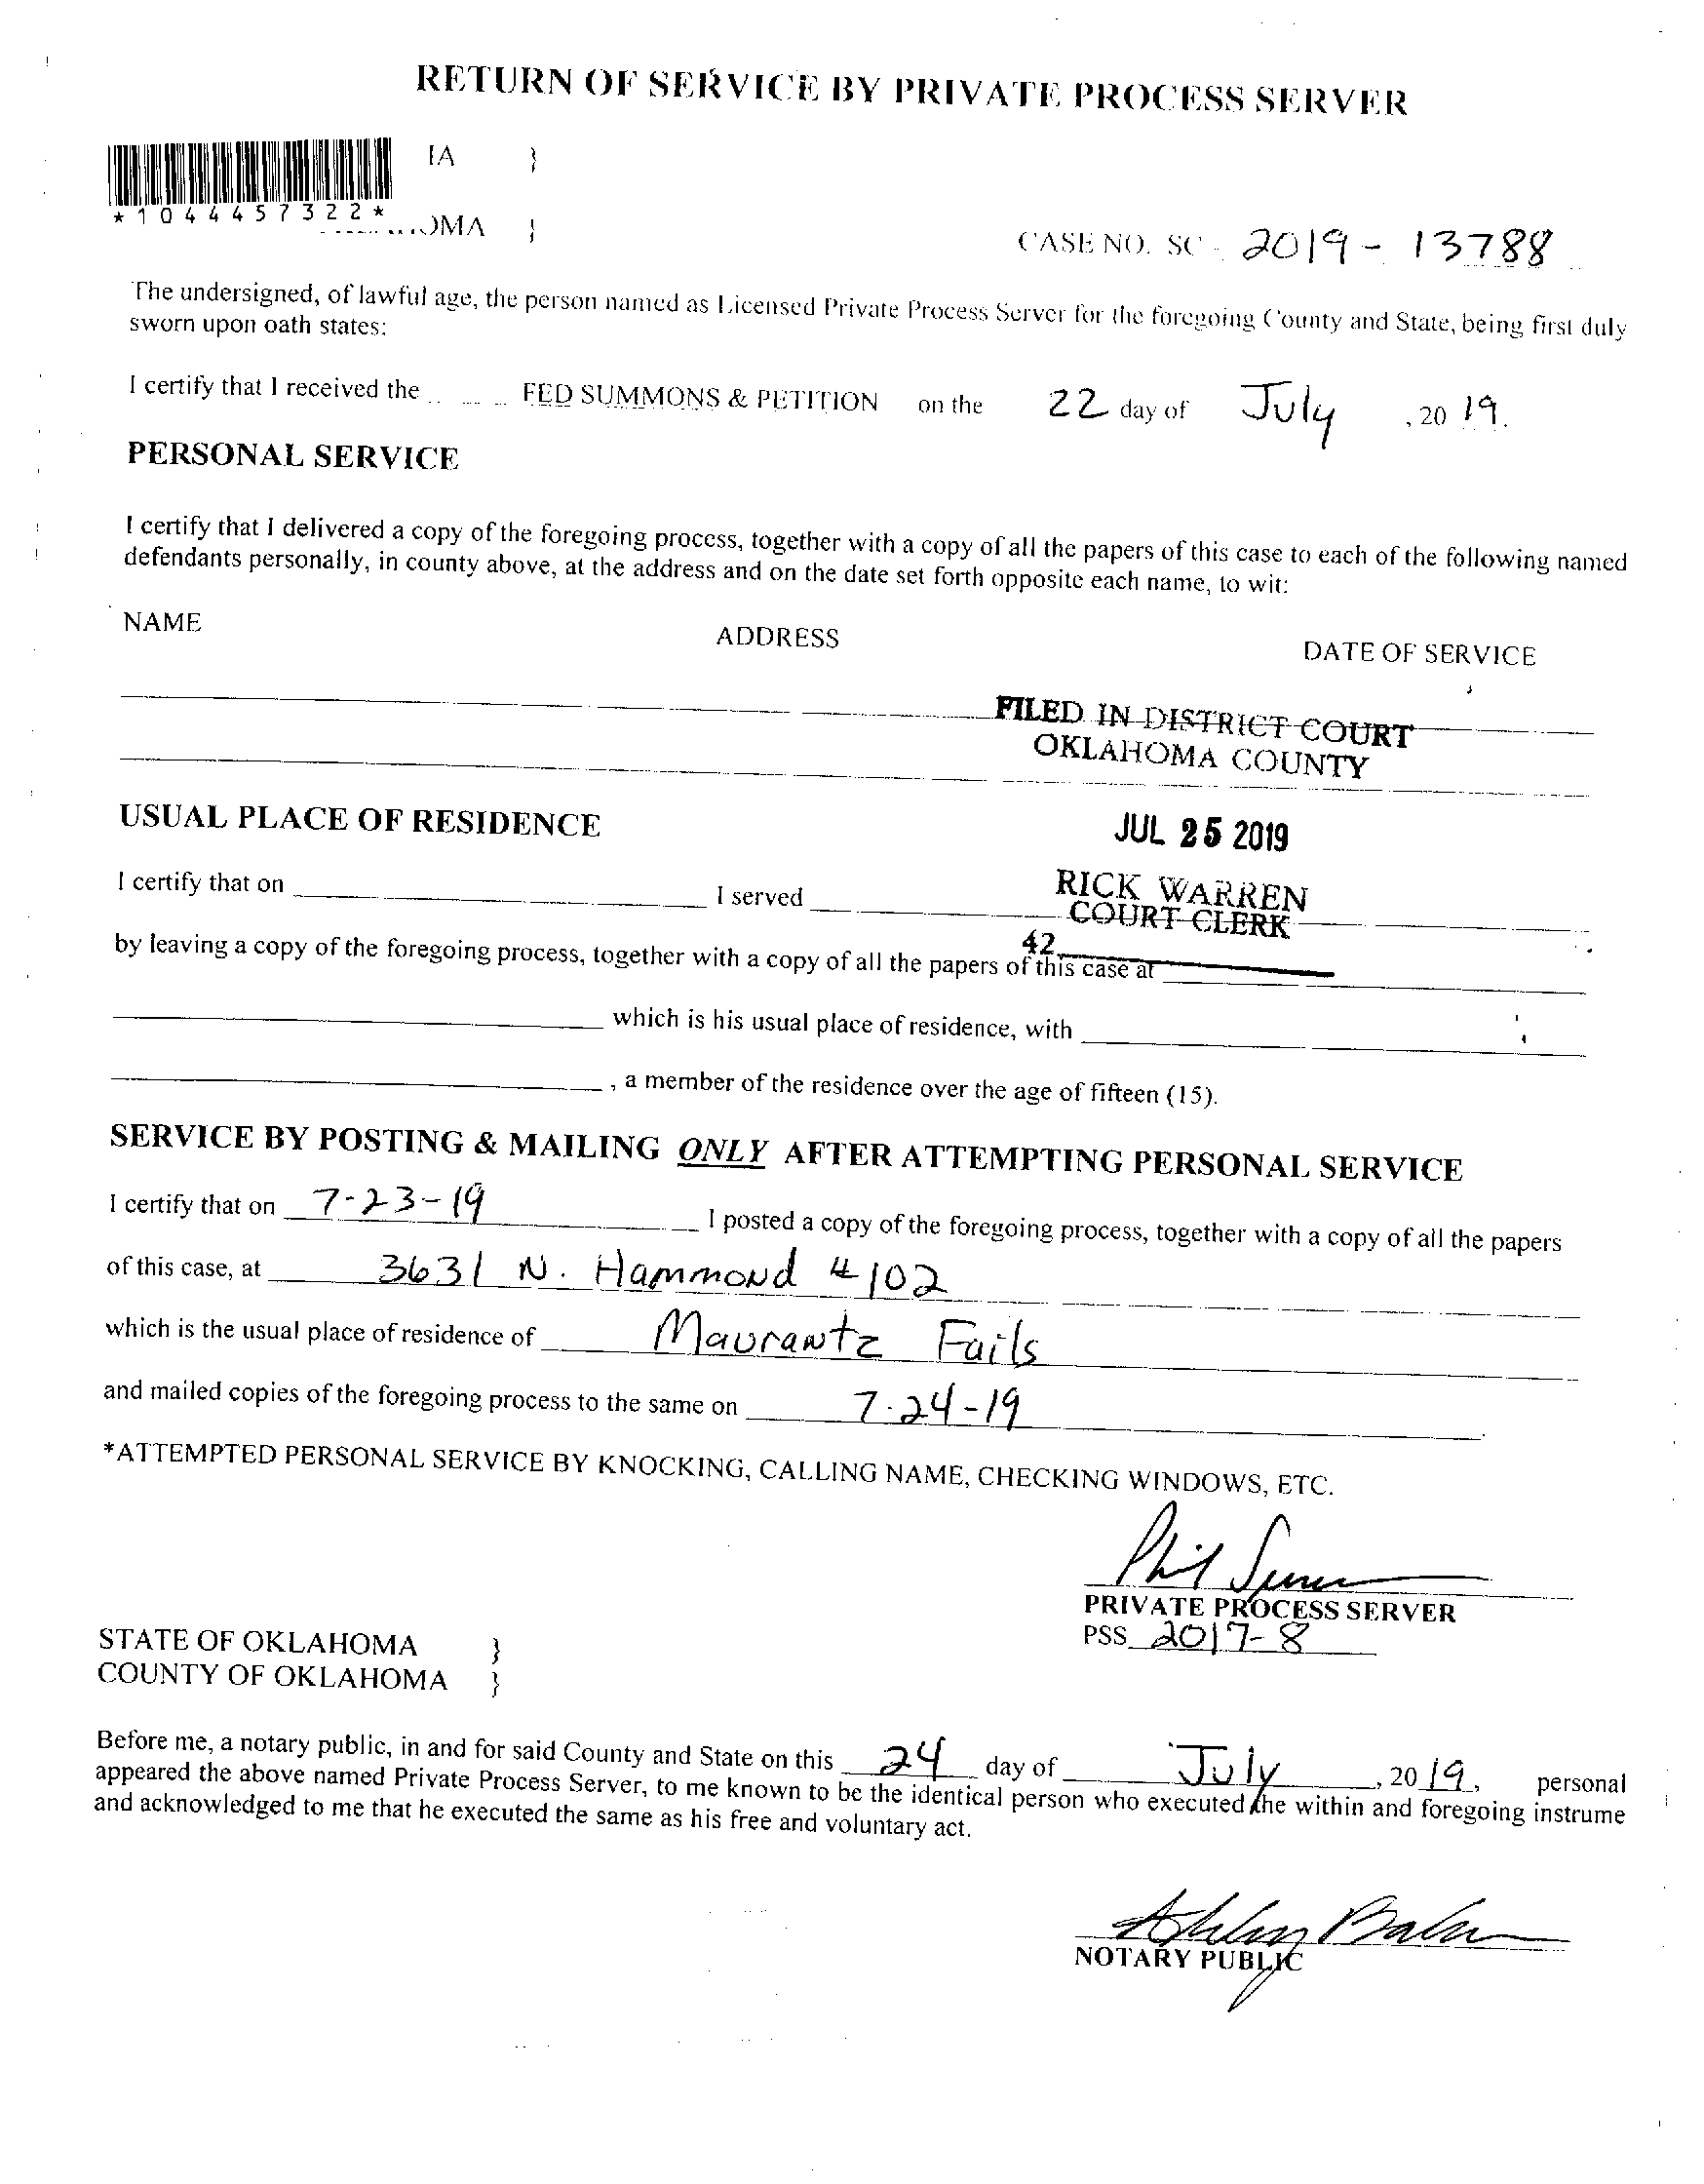 RETURN OF SERVICE BY PRIVATE PROCESS SERVER
IA }
*1044457322*
OMA }
CASE NO. SC - 2019 - 13788
The undersigned, of lawful age, the person named as Licensed Private Process Server for the foregoing County and State, being first duly
sworn upon oath states:
I certify that I received the FED SUMMONS & PETITION on the 22 day of July , 20 19.
PERSONAL SERVICE
I certify that I delivered a copy of the foregoing process, together with a copy of all the papers of this case to each of the following named
defendants personally, in county above, at the address and on the date set forth opposite each name, to wit:
NAME ADDRESS DATE OF SERVICE
FILED IN DISTRICT COURT
OKLAHOMA COUNTY
JUL 25 2019
RICK WARREN
COURT CLERK
42
USUAL PLACE OF RESIDENCE
I certify that on I served
by leaving a copy of the foregoing process, together with a copy of all the papers of this case at
which is his usual place of residence, with
, a member of the residence over the age of fifteen (15).
SERVICE BY POSTING & MAILING ONLY AFTER ATTEMPTING PERSONAL SERVICE
I certify that on 7-23-19 I posted a copy of the foregoing process, together with a copy of all the papers
of this case, at 3631 N. Hammond # 102
which is the usual place of residence of Maurantz Fails
and mailed copies of the foregoing process to the same on 7-24-19
*ATTEMPTED PERSONAL SERVICE BY KNOCKING, CALLING NAME, CHECKING WINDOWS, ETC.
Phil
PRIVATE PROCESS SERVER
PSS 2017-8
STATE OF OKLAHOMA }
COUNTY OF OKLAHOMA }
Before me, a notary public, in and for said County and State on this 24 day of July , 20 19, personal
appeared the above named Private Process Server, to me known to be the identical person who executed the within and foregoing instrume
and acknowledged to me that he executed the same as his free and voluntary act.
NOTARY PUBLIC